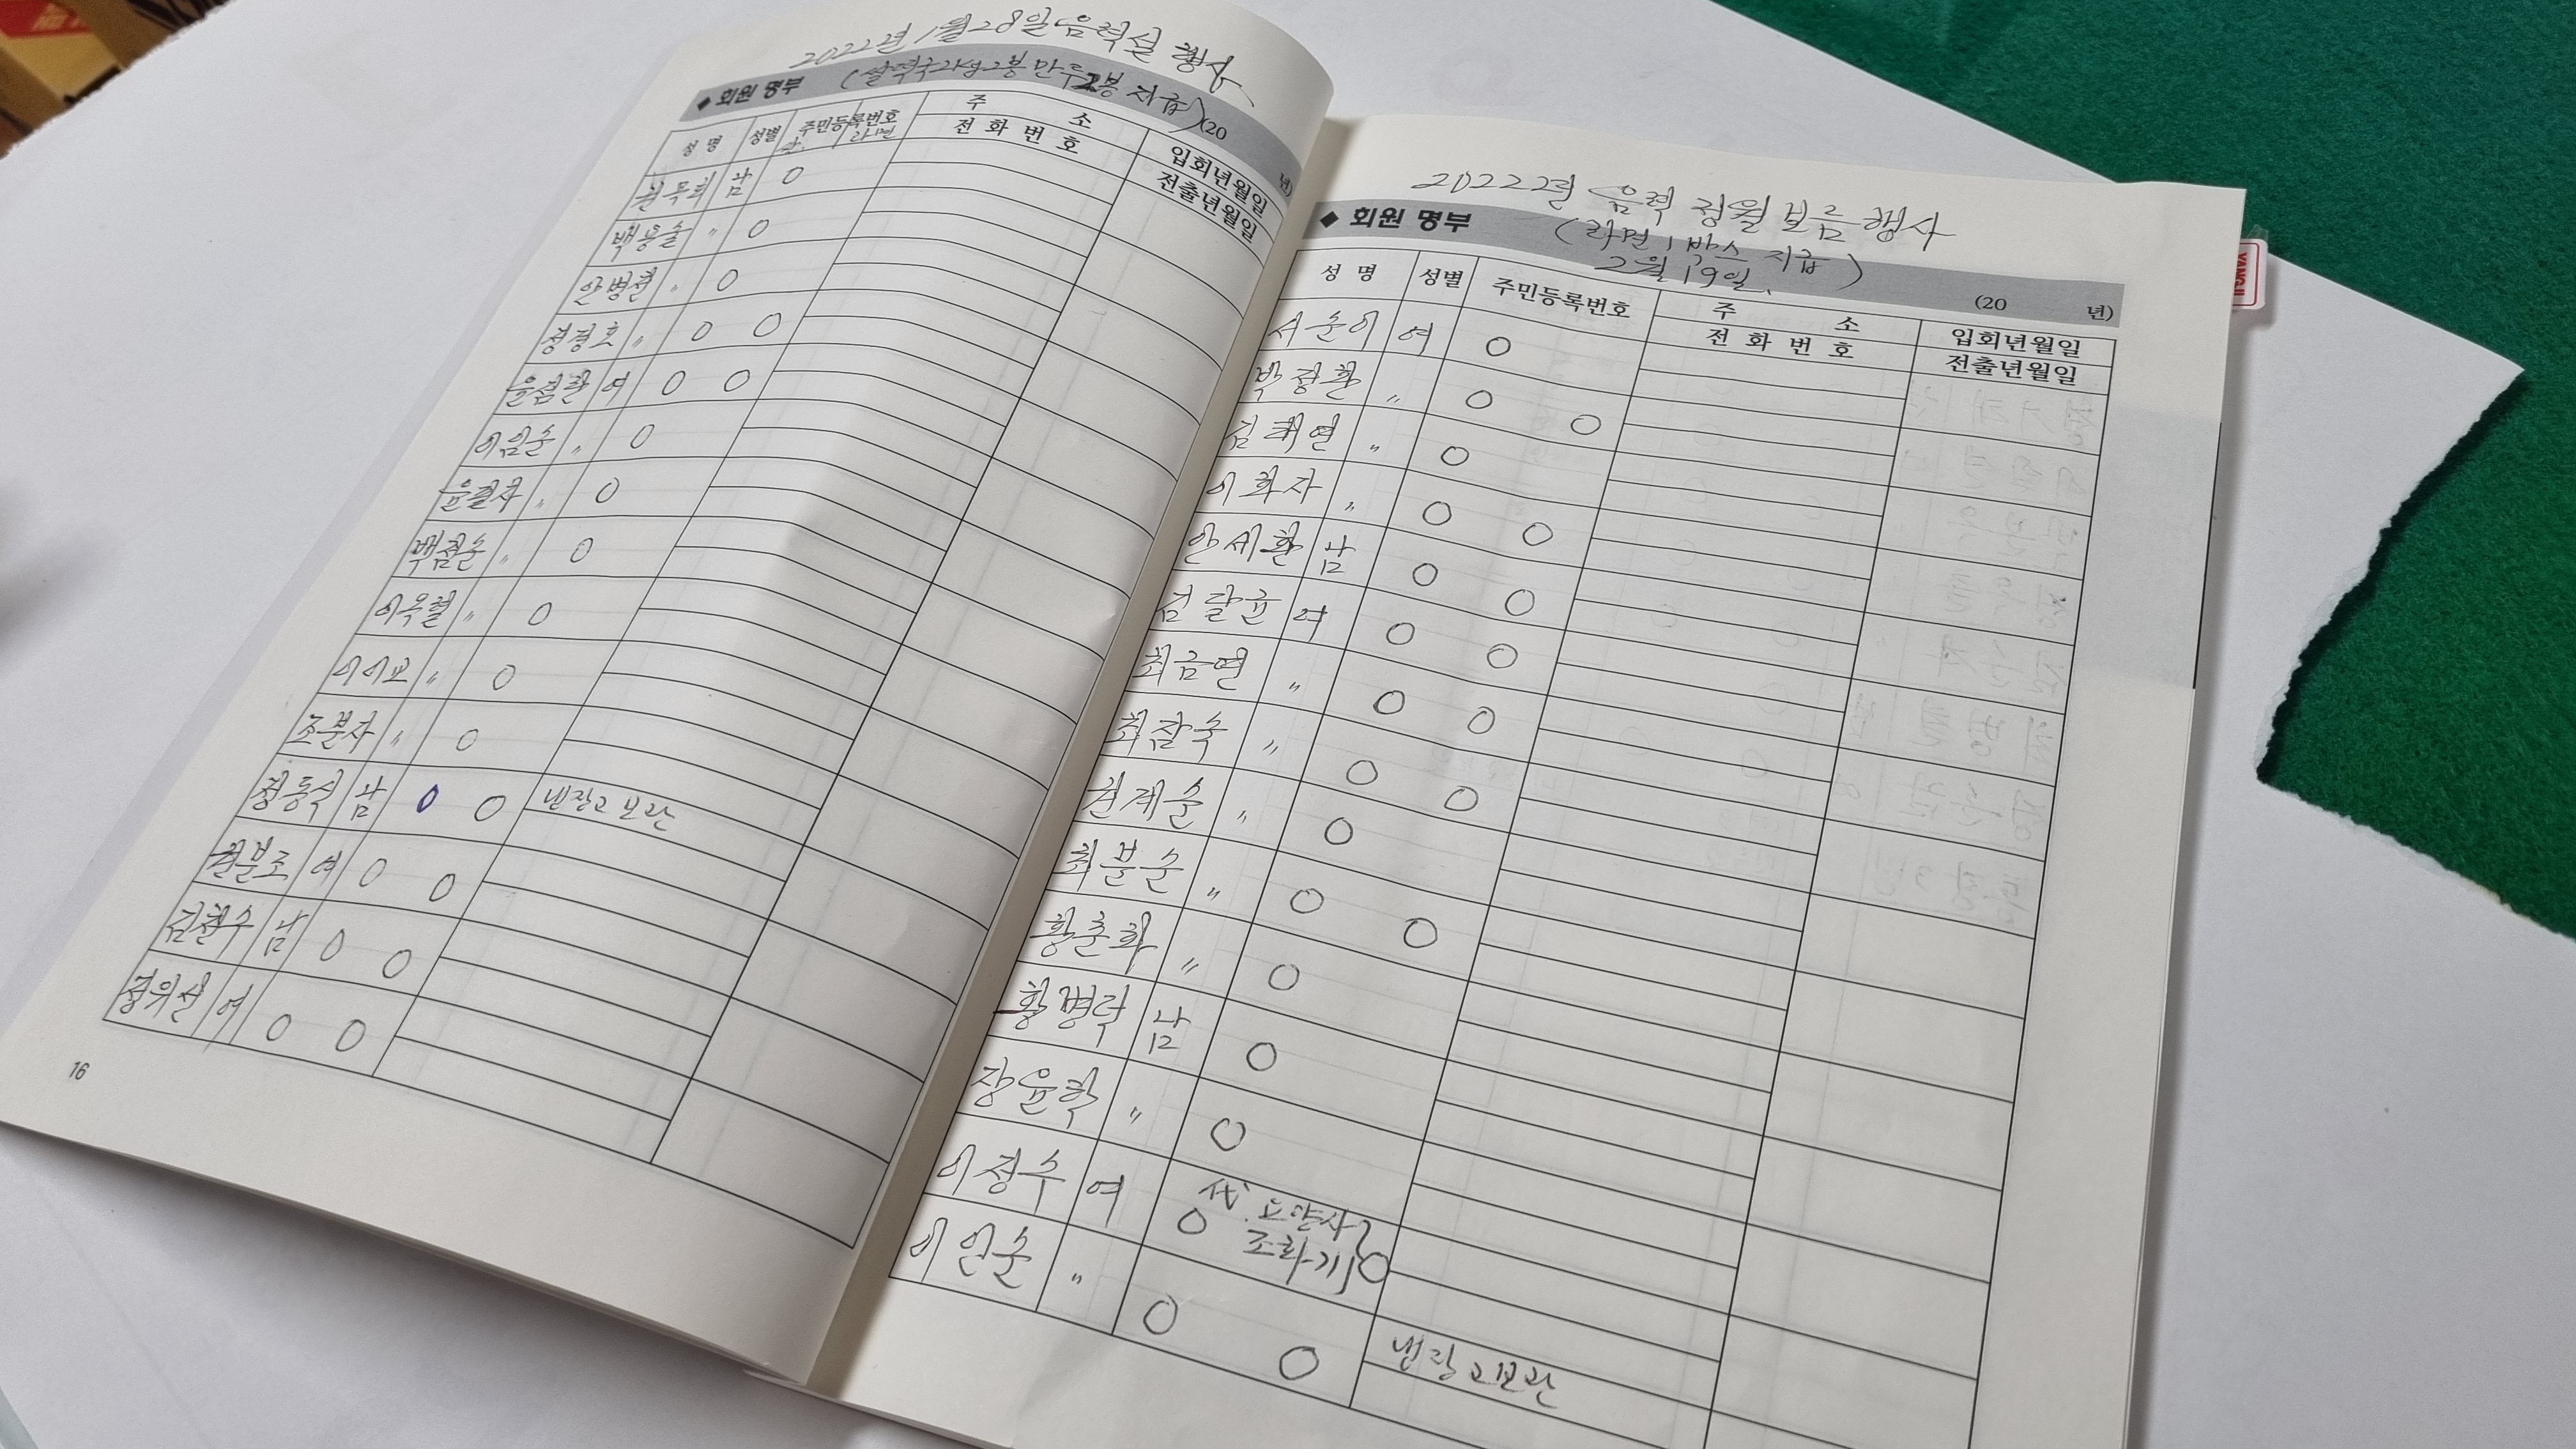 2022년 1월 28일 음력설 행사
◆ 회원 명부 2봉 만두 2봉 지급) (20 년)
성 명 성별 주민등록번호 주 소 입회년월일
라면 전 화 번 호 전출년월일
남 ○
백용술 〃 ○
안병선 〃 ○
정경호 〃 ○ ○
윤점란 여 ○ ○
이임순 〃 ○
〃 ○
백점순 〃 ○
이옥형 〃 ○
〃 ○
조분자 〃 ○
정동식 남 ○ ○ 냉장고 보관
권분조 여 ○ ○
김천수 남 ○ ○
정위선 여 ○ ○
16
2022년 음력 정월 보름 행사
◆ 회원 명부 (라면 1박스 지급)
2월 19일 (20 년)
성 명 성별 주민등록번호 주 소 입회년월일
전 화 번 호 전출년월일
서순이 여 ○
박정환 〃 ○ ○
김해연 〃 ○
이화자 〃 ○ ○
안세환 남 ○ ○
김달균 여 ○ ○
최금연 〃 ○ ○
최잠숙 〃 ○ ○
권계순 〃 ○
최분순 〃 ○ ○
황춘화 〃 ○
황병락 남 ○
장윤학 〃 ○
이정수 여 ○ 요양사 ○
이인순 〃 ○ ○ 냉장고보관